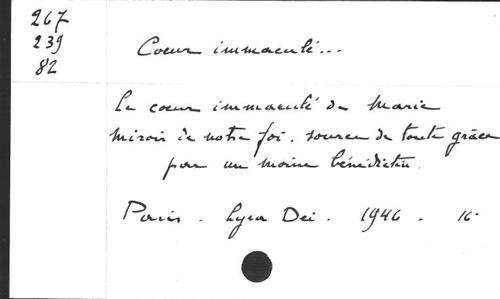 267
239
82
Coeur immaculé...
Le coeur immaculé de Marie
miroir de notre foi. source de toute grâce
par un moine bénédictin.
Paris - Lyra Dei - 1946 - 16°